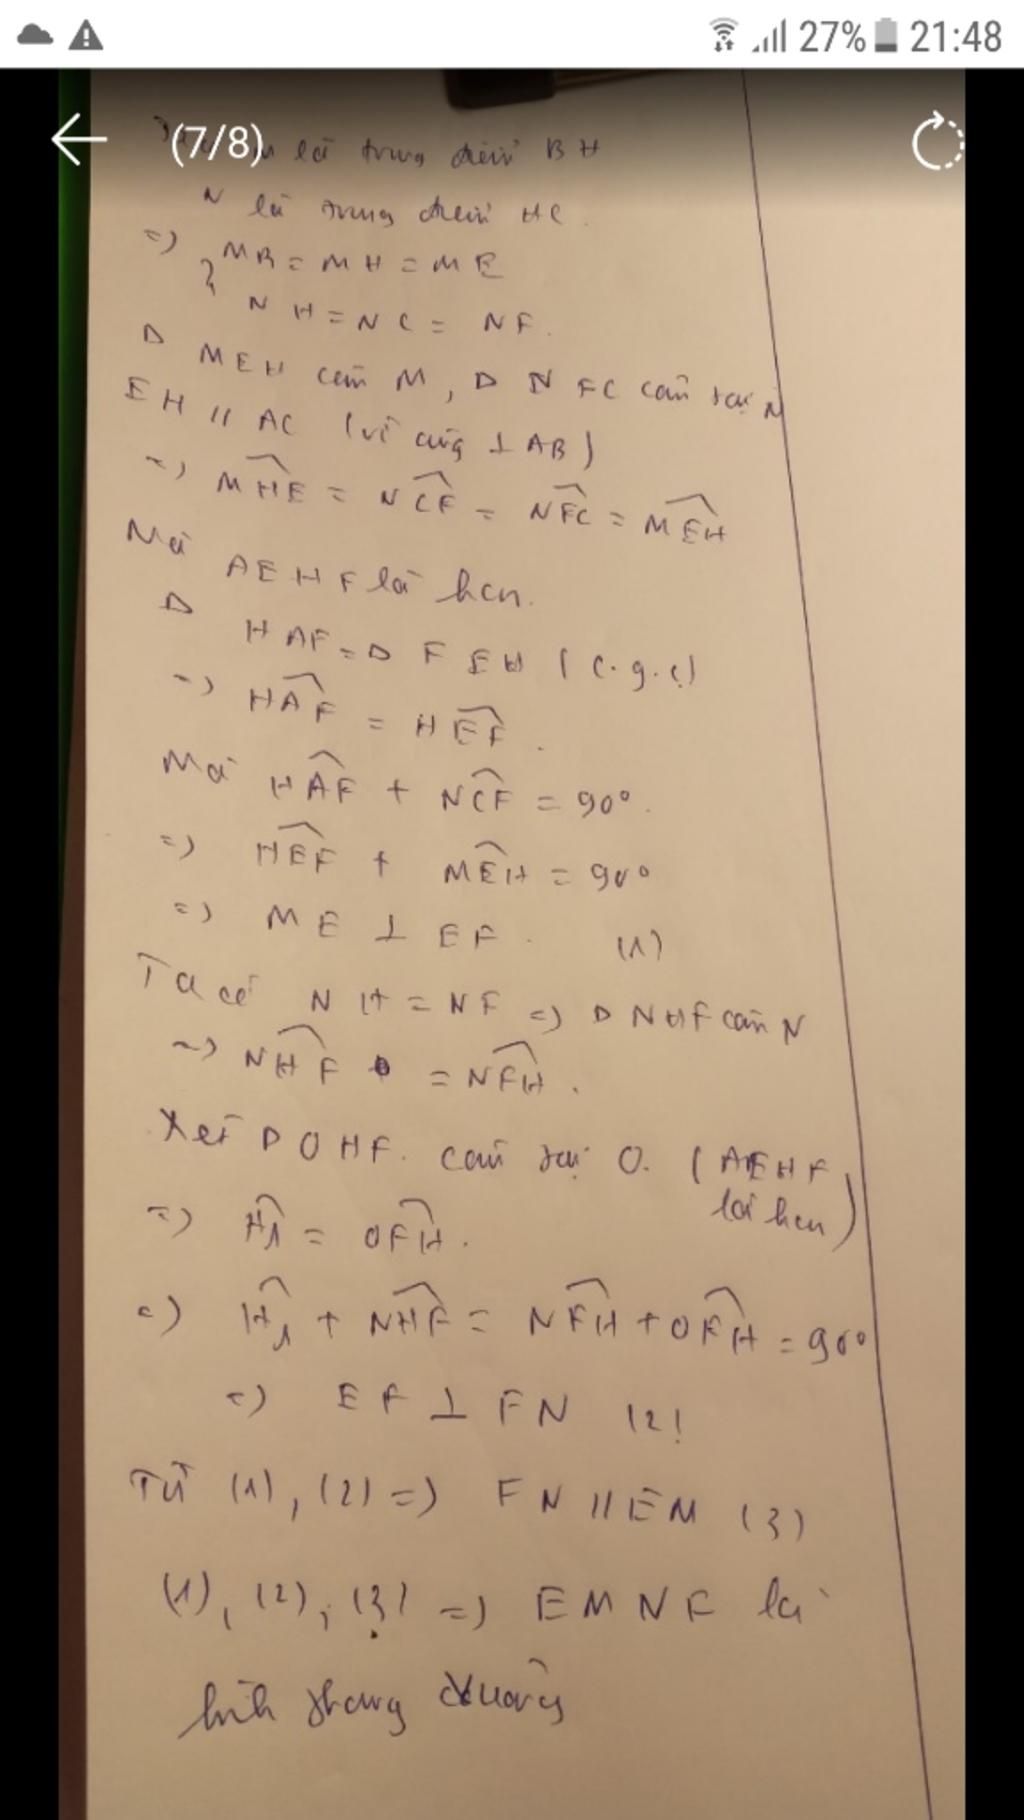 27% 21:48
(7/8)
là trung điểm BH
N là trung điểm HC.
=> MB = MH = ME
NH = NC = NF.
Δ MEH cân M, Δ NFC cân tại N
EH // AC (vì cùng ⊥ AB)
=> MHE = NCF = NFC = MEH
Mà AEHF là hcn.
Δ HAF = Δ FEH (c.g.c)
=> HAF = HEF.
Mà HAF + NCF = 90°.
=> HEF + MEH = 90°
=> ME ⊥ EF. (1)
Ta có NH = NF => Δ NHF cân N
=> NHF = NFH.
Xét Δ OHF. cân tại O. (AEHF
là hcn)
=> H1 = OFH.
=> H1 + NHF = NFH + OFH = 90°
=> EF ⊥ FN (2)
Từ (1), (2) => FN // EM (3)
(1), (2), (3) => EMNF là
hình thang vuông